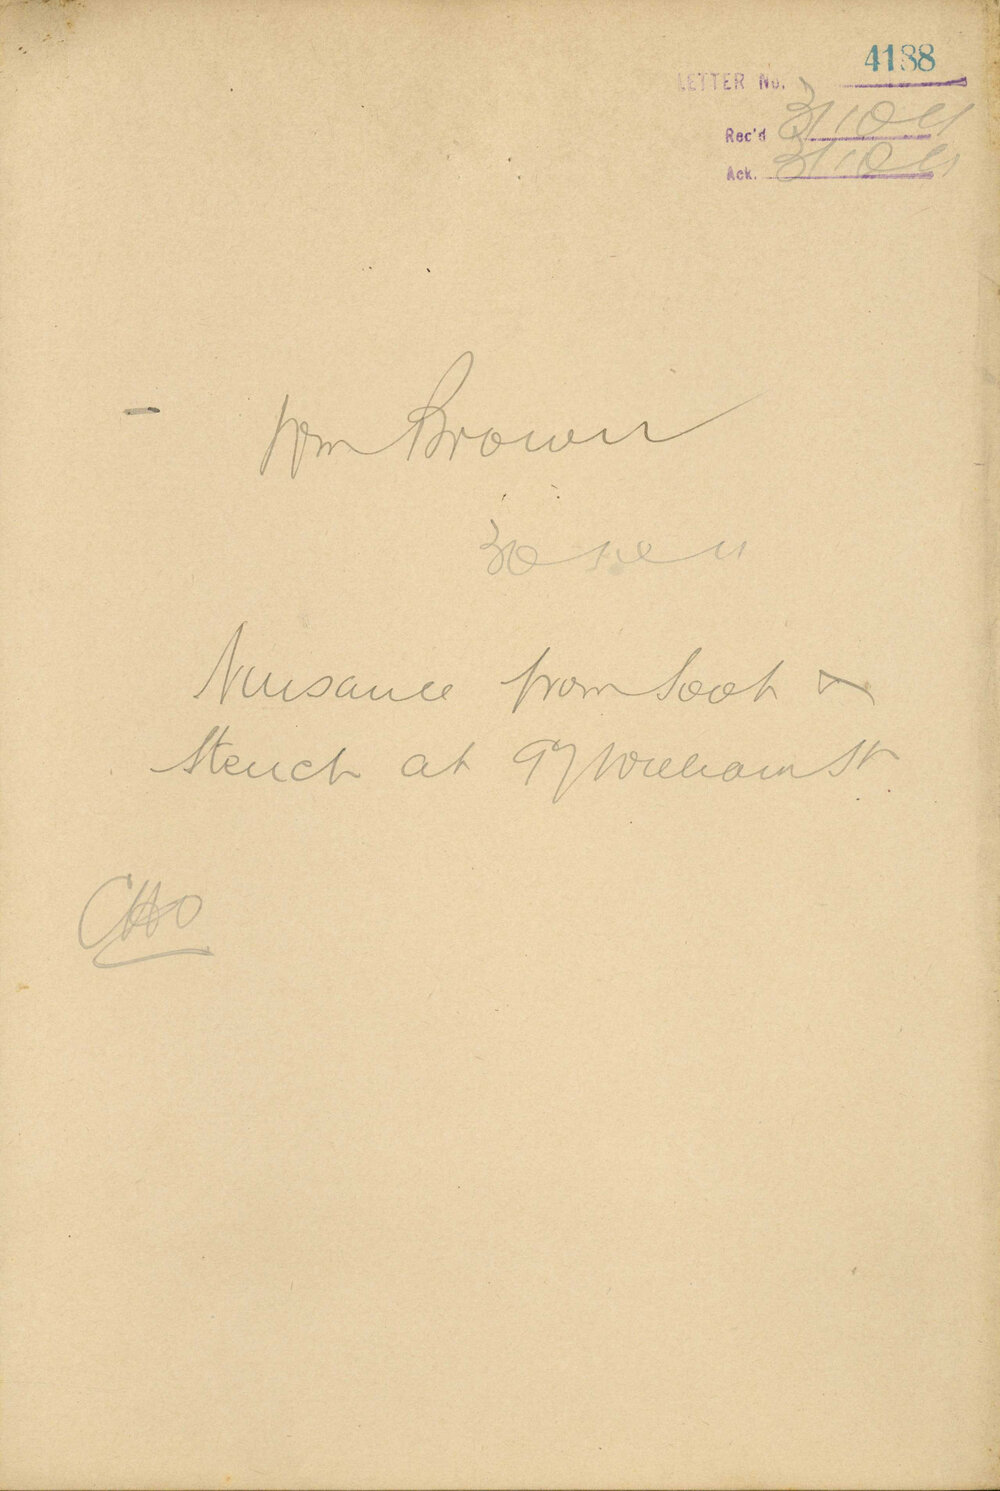 4188
LETTER No.
Rec'd 31.10.11
Ack. 31.10.11
Wm Brown
30
Nuisance from Soot &
Stench at 97 William St
CHO